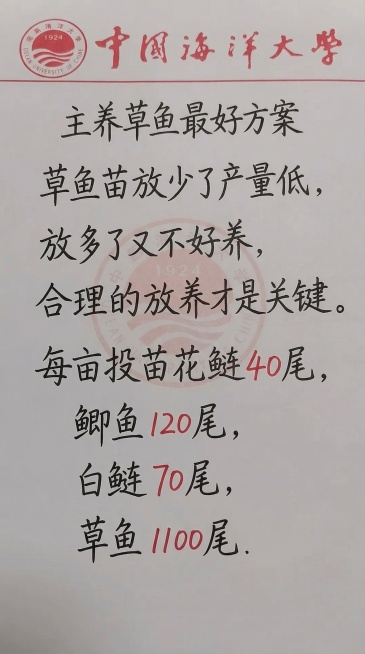 中国海洋大学
1924
主养草鱼最好方案
草鱼苗放少了产量低，
放多了又不好养，
合理的放养才是关键。
每亩投苗花鲢40尾，
鲫鱼120尾，
白鲢70尾，
草鱼1100尾.
1924